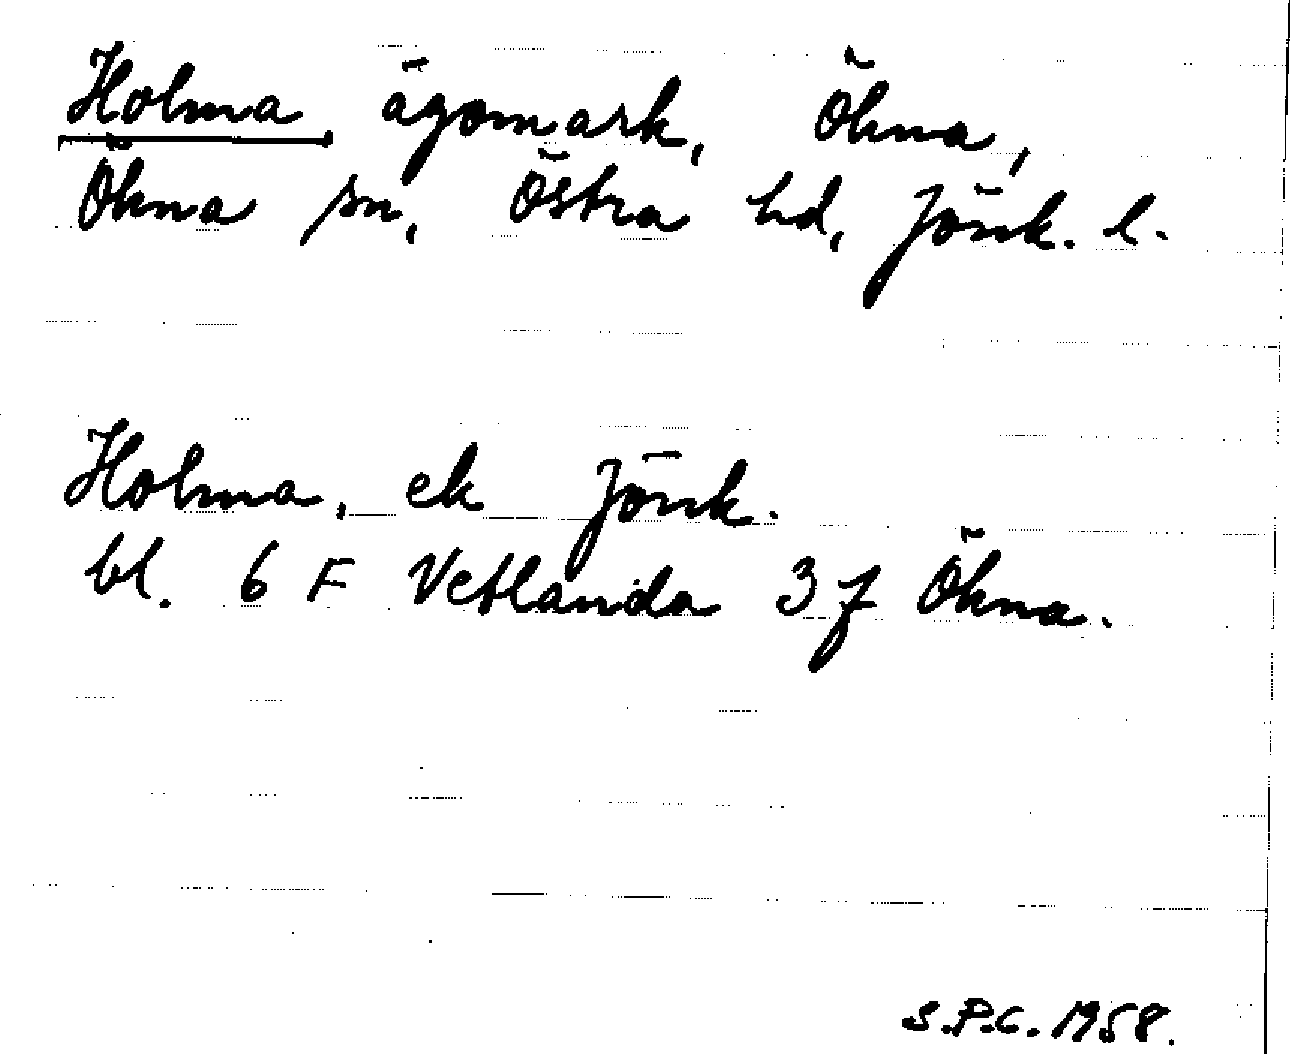 Holma, ägomark, Ökna,
Ökna sn, Östra hd, Jönk. l.
Holma, ek Jönk.
bl. 6 F Vetlanda 3 f Ökna.
S.P.C. 1958.